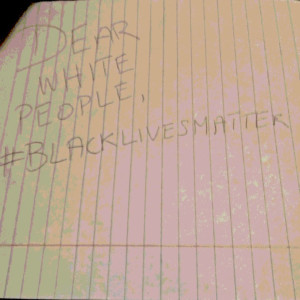 DEAR
WHITE
PEOPLE,
#BLACKLIVESMATTER